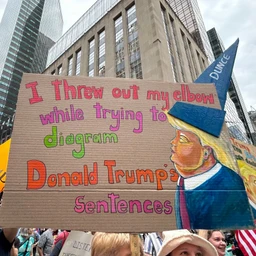 I threw out my elbow
while trying to
diagram
Donald Trump's
sentences
DUNCE